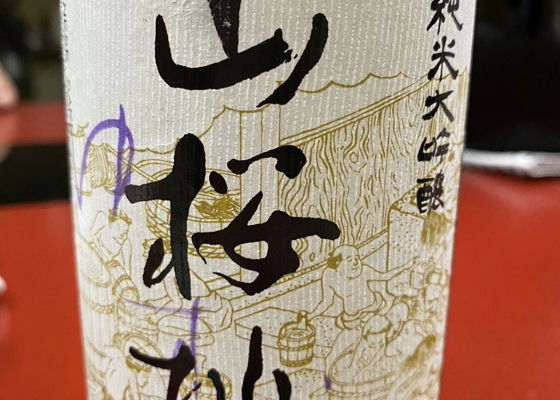 純米大吟醸
山桜桃